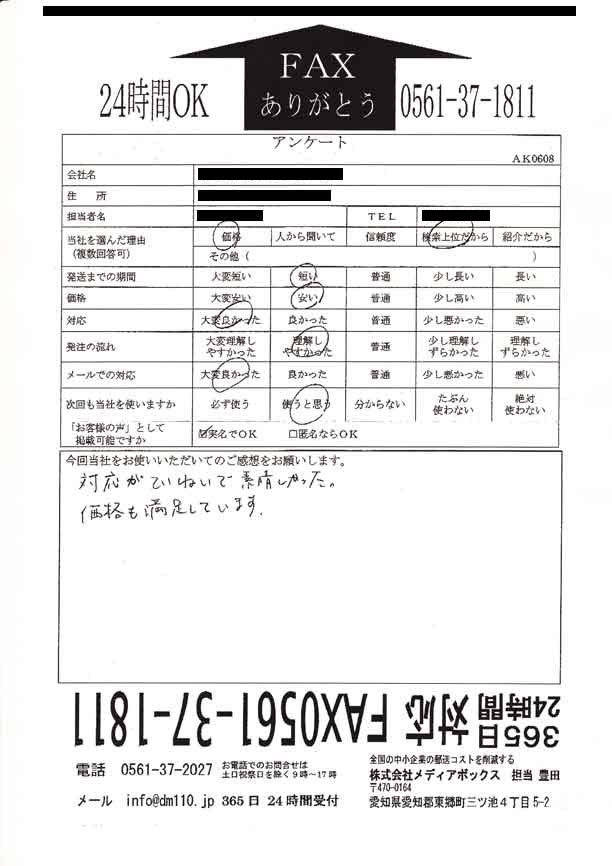 FAX
ありがとう
24時間OK
0561-37-1811
アンケート
AK0608
会社名
住 所
担当者名 TEL
当社を選んだ理由
(複数回答可)
価格 人から聞いて 信頼度 検索上位だから 紹介だから
その他 ( )
発送までの期間 大変短い 短い 普通 少し長い 長い
価格 大変安い 安い 普通 少し高い 高い
対応 大変良かった 良かった 普通 少し悪かった 悪い
発注の流れ 大変理解しやすかった 理解しやすかった 普通 少し理解しずらかった 理解しずらかった
メールでの対応 大変良かった 良かった 普通 少し悪かった 悪い
次回も当社を使いますか 必ず使う 使うと思う 分からない たぶん使わない 絶対使わない
「お客様の声」として
掲載可能ですか
☑実名でOK □匿名ならOK
今回当社をお使いいただいてのご感想をお願いします。
対応がていねいで素晴しかった。
価格も満足しています.
365日24時間対応 FAX0561-37-1811
電話 0561-37-2027 お電話でのお問合せは
土日祝祭日を除く9時~17時
メール info@dm110.jp 365日 24時間受付
全国の中小企業の郵送コストを削減する
株式会社メディアボックス 担当 豊田
〒470-0164
愛知県愛知郡東郷町三ツ池4丁目5-2